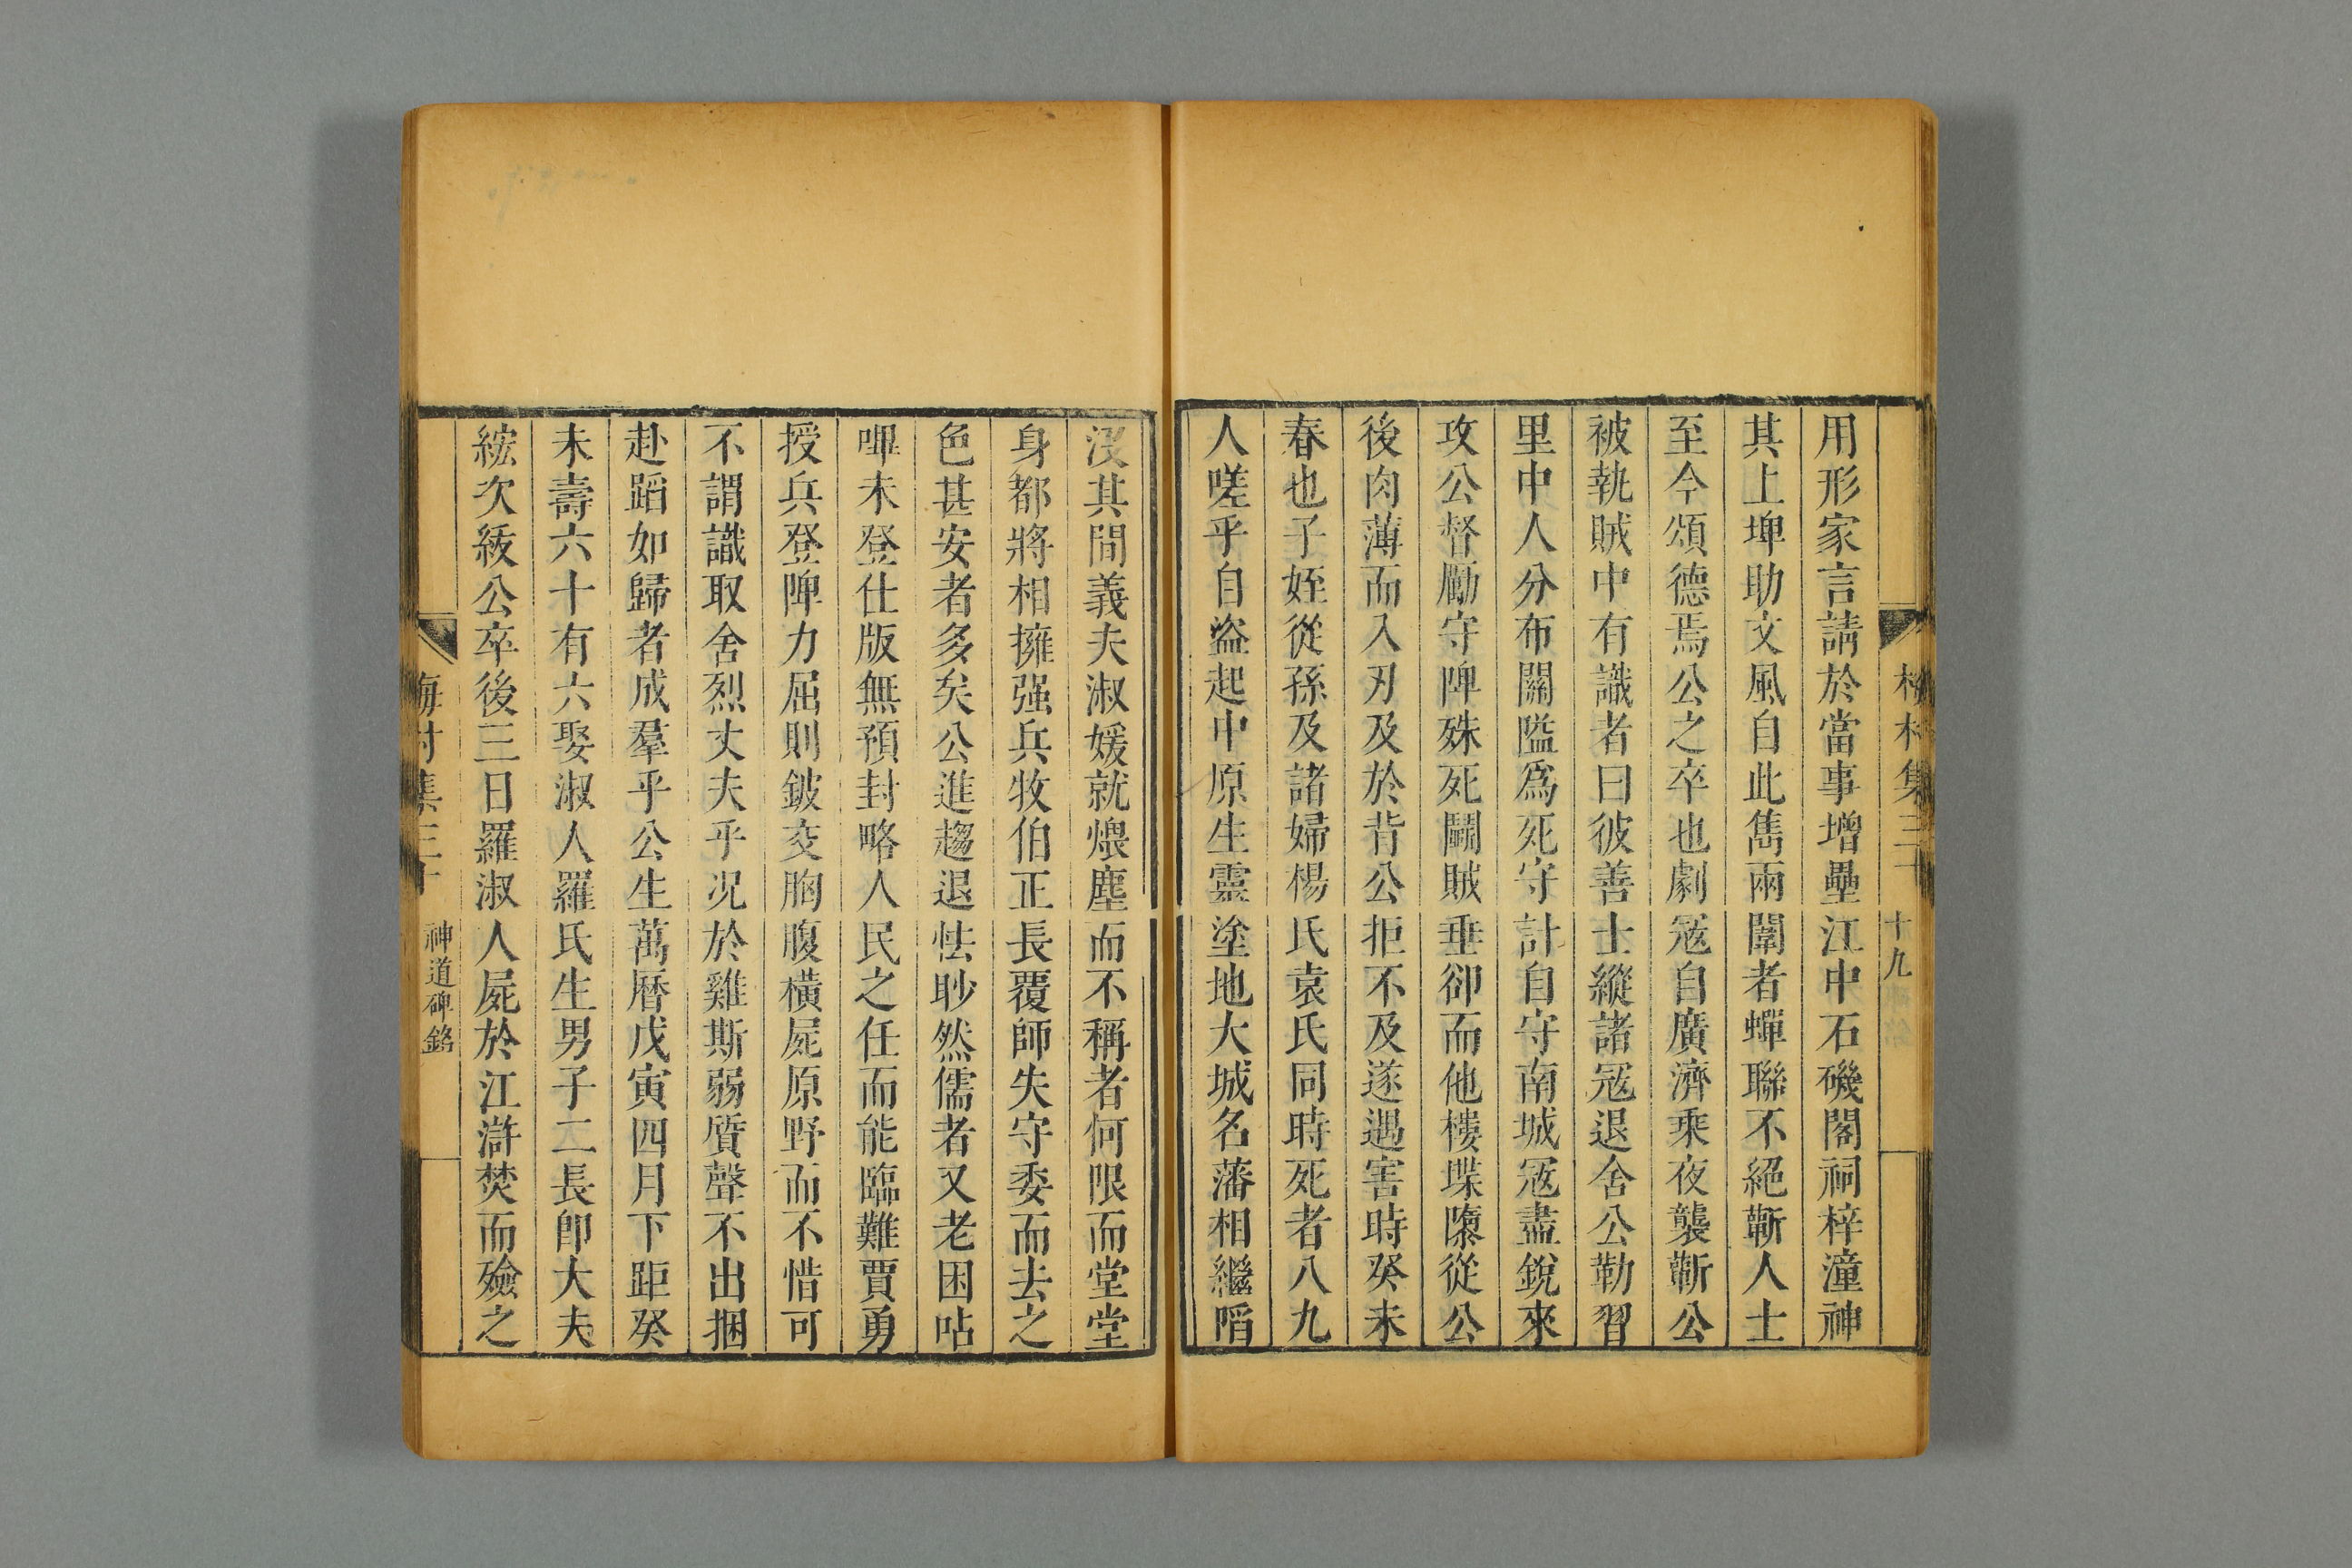 梅村集三十
十九
用形家言請於當事增壘江中石磯閣祠梓潼神
其上埤助文風自此雋兩闈者蟬聯不絕蘄人士
至今頌德焉公之卒也劇冦自廣濟乘夜襲蘄公
被執賊中有識者曰彼善士縱諸冦退舍公勒習
里中人分布關隘爲死守計自守南城冦盡銳來
攻公督勵守陴殊死鬭賊垂卻而他樓堞隳從公
後肉薄而入刃及於背公拒不及遂遇害時癸未
春也子姪從孫及諸婦楊氏袁氏同時死者八九
人嗟乎自盜起中原生靈塗地大城名藩相繼陷
沒其間義夫淑媛就煨塵而不稱者何限而堂堂
身都將相擁强兵牧伯正長覆師失守委而去之
色甚安者多矣公進趨退怯眇然儒者又老困呫
嗶未登仕版無預封略人民之任而能臨難賈勇
授兵登陴力屈則鈹交胸腹橫屍原野而不惜可
不謂識取舍烈丈夫乎况於雞斯弱質聲不出捆
赴蹈如歸者成羣乎公生萬曆戊寅四月下距癸
未壽六十有六娶淑人羅氏生男子二長卽大夫
綋次紱公卒後三日羅淑人屍於江滸焚而殮之
梅村集三十
神道碑銘